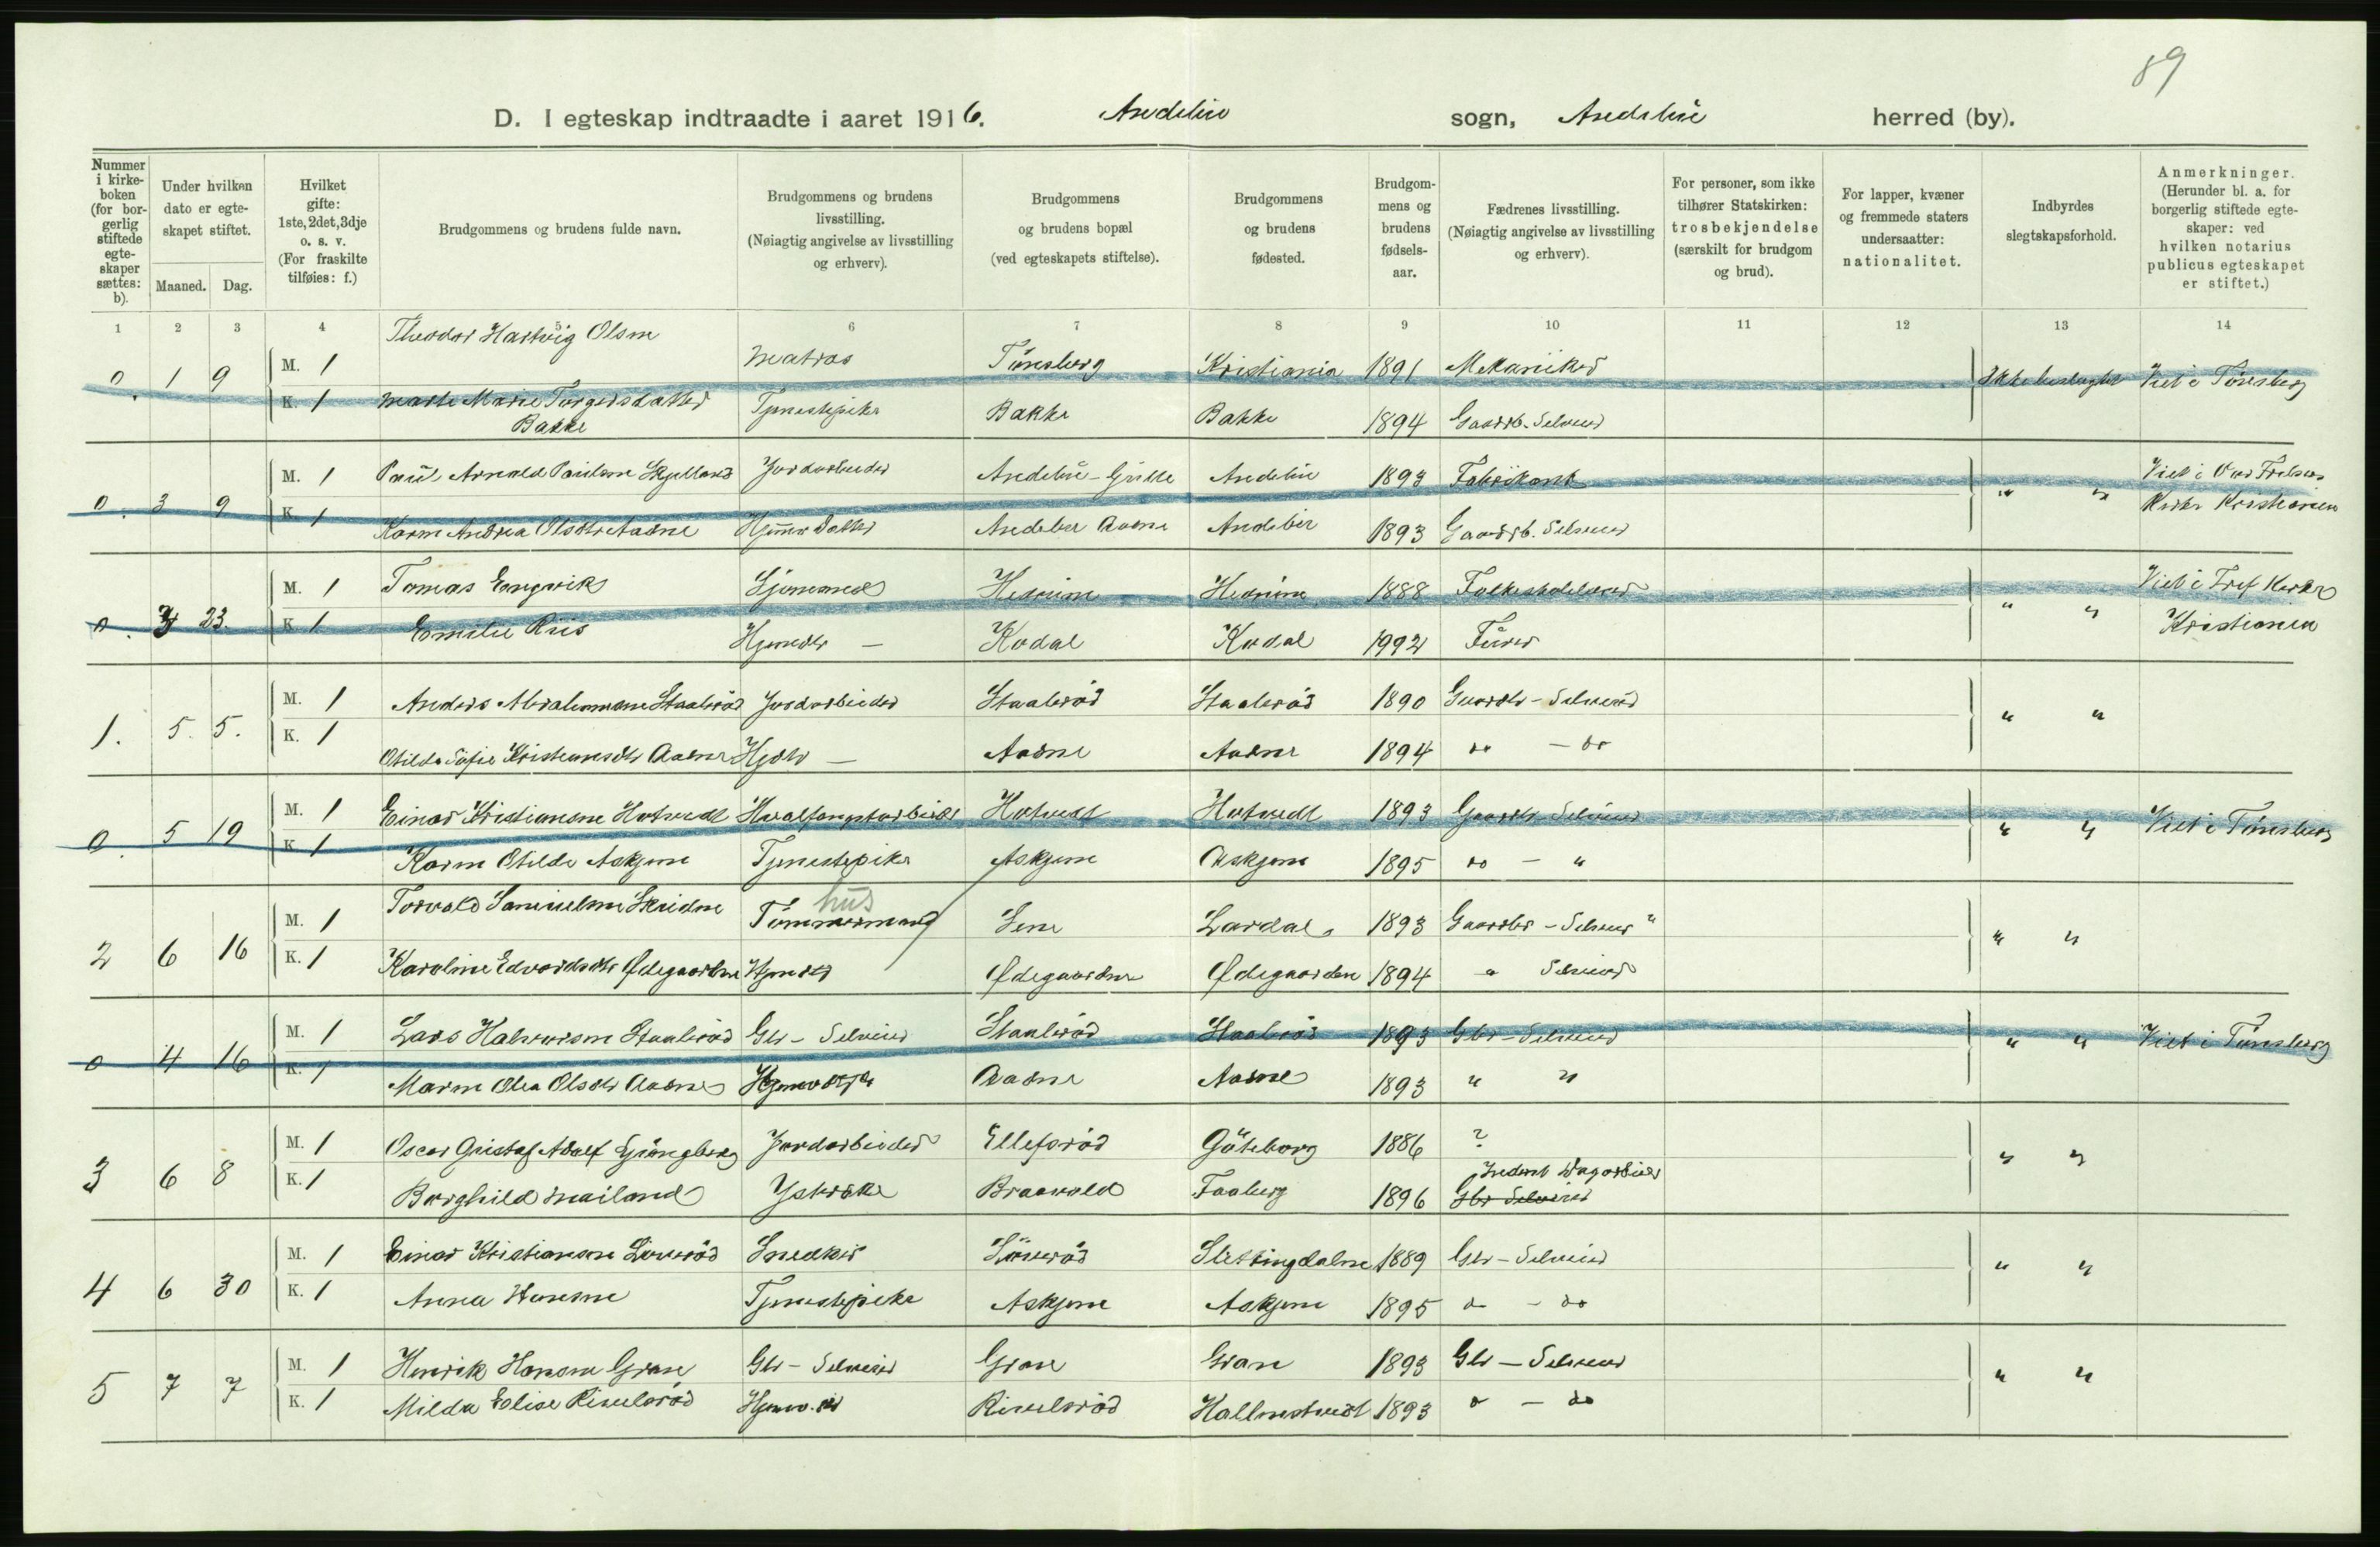 89
D. I egteskap indtraadte i aaret 1916. Andebu sogn, Andebu herred (by).
Nummer i kirke-boken (for bor-gerlig stiftede egte-skaper sættes: b).
Under hvilken dato er egte-skapet stiftet.
Maaned. Dag.
Hvilket gifte: 1ste, 2det, 3dje o. s. v. (For fraskilte tilføies: f.)
Brudgommens og brudens fulde navn.
Brudgommens og brudens livsstilling. (Nøiagtig angivelse av livsstilling og erhverv).
Brudgommens og brudens bopæl (ved egteskapets stiftelse).
Brudgommens og brudens fødested.
Brudgom-mens og brudens fødsels-aar.
Fædrenes livsstilling. (Nøiagtig angivelse av livsstilling og erhverv).
For personer, som ikke tilhører Statskirken: trosbekjendelse (særskilt for brudgom og brud).
For lapper, kvæner og fremmede staters undersaatter: nationalitet.
Indbyrdes slegtskapsforhold.
Anmerkninger. (Herunder bl. a. for borgerlig stiftede egte-skaper: ved hvilken notarius publicus egteskapet er stiftet.)
1 2 3 4 5 6 7 8 9 10 11 12 13 14
0. 1 9 M. 1 Theodor Hartvig Olsen Matros Tönsberg Kristiania 1891 Mekaniker Ikke beslegtet Viet i Tönsberg
K. 1 Marte Marie Torgersdatter Bakke Tjenestepike Bakke Bakke 1894 Gaardb. Selveier
0. 3 9 M. 1 Paul Arnold Paulsen Skjelland Jordarbeider Andebu - Andebu 1893 Fabrikant " " Viet i Vor Frelsers Kirke Kristiania
K. 1 Karen Andrea Olsdtr Aadne Hjemmev Datter Andebu Aadne Andebu 1893 Gaardb. Selveier
0. 3 23. M. 1 Tomas Engevik Sjömand Hedrum Hedrum 1888 Folkeskolelærer " " Viet i Tref Kirke Kristiania
K. 1 Emilie Riis Hjemdtr — Kodal Kodal 1992 Furer
1. 5. 5. M. 1 Anders Abrahamsen Staaleröd Jordarbeider Staaleröd Staaleröd 1890 Gaardbr - Selveier " "
K. 1 Otilde Sofie Kristiansdtr Aadne Hjdtr — Aadne Aadne 1894 do — do
0. 5 19 M. 1 Einar Kristiansen Hotvedt Hvalfangstarbeider Hotvedt Hotvedt 1893 Gaardbr Selveier " " Viet i Tönsberg
K. 1 Karen Otilde Askjem Tjenestepike Askjem Askjem 1895 do — "
2 6 16 M. 1 Torvald Samuelsen Skridne Tömmermand hus Sem Lardal 1893 Gaardbr - Selveier " "
K. 1 Karoline Edvardsdtr Ødegaarden Hjemdtr Ødegaarden Ødegaarden 1894 " Selveier
0 4 16 M. 1 Lars Halvorsen Staaleröd Gbr - Selveier Staaleröd Staaleröd 1893 Gbr - Selveier " " Viet i Tönsberg
K. 1 Maren Olea Olsdtr Aadne Aadne Aadne 1893 " "
3 6 8 M. 1 Oscar Gustaf Adolf Ljungberg Jordarbeider Ellefsröd Göteborg 1886 ? " "
K. 1 Borghild Mailand Braavold Faaberg 1896 Gbr Selveier
4 6 30 M. 1 Einar Kristiansen Löveröd Snedker Löveröd Slettingdalen 1889 Gbr - Selveier " "
K. 1 Anna Hansen Tjenestepike Askjem Askjem 1895 do — do
5 7 7 M. 1 Henrik Hansen Gran Gbr - Selveier Gran Gran 1893 Gbr — Selveier " "
K. 1 Milda Elise Rivelsröd Rivelsröd Hallenstvedt 1893 do — do